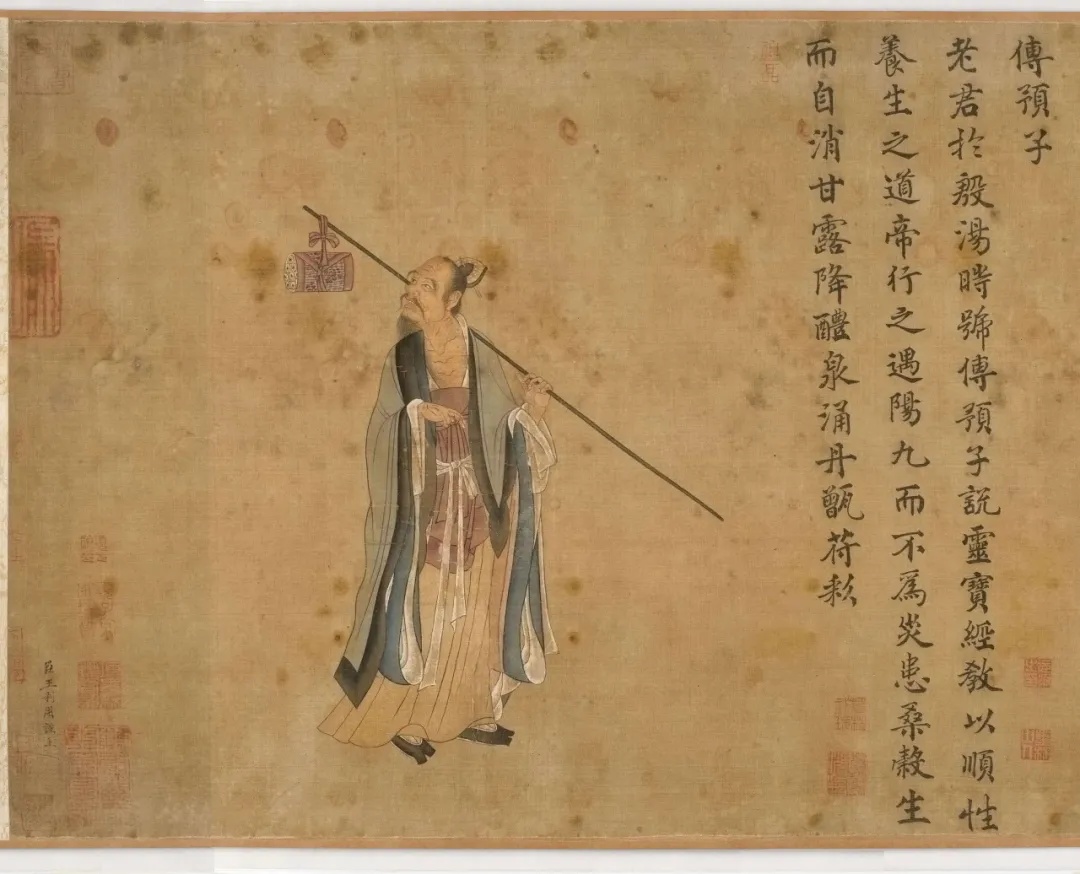 傳預子
老君扵殷湯時號傳預子説靈寶經敎以順性
養生之道帝行之遇陽九而不爲災患桑穀生
而自消甘露降醴泉涌丹甑
臣王利用謹上